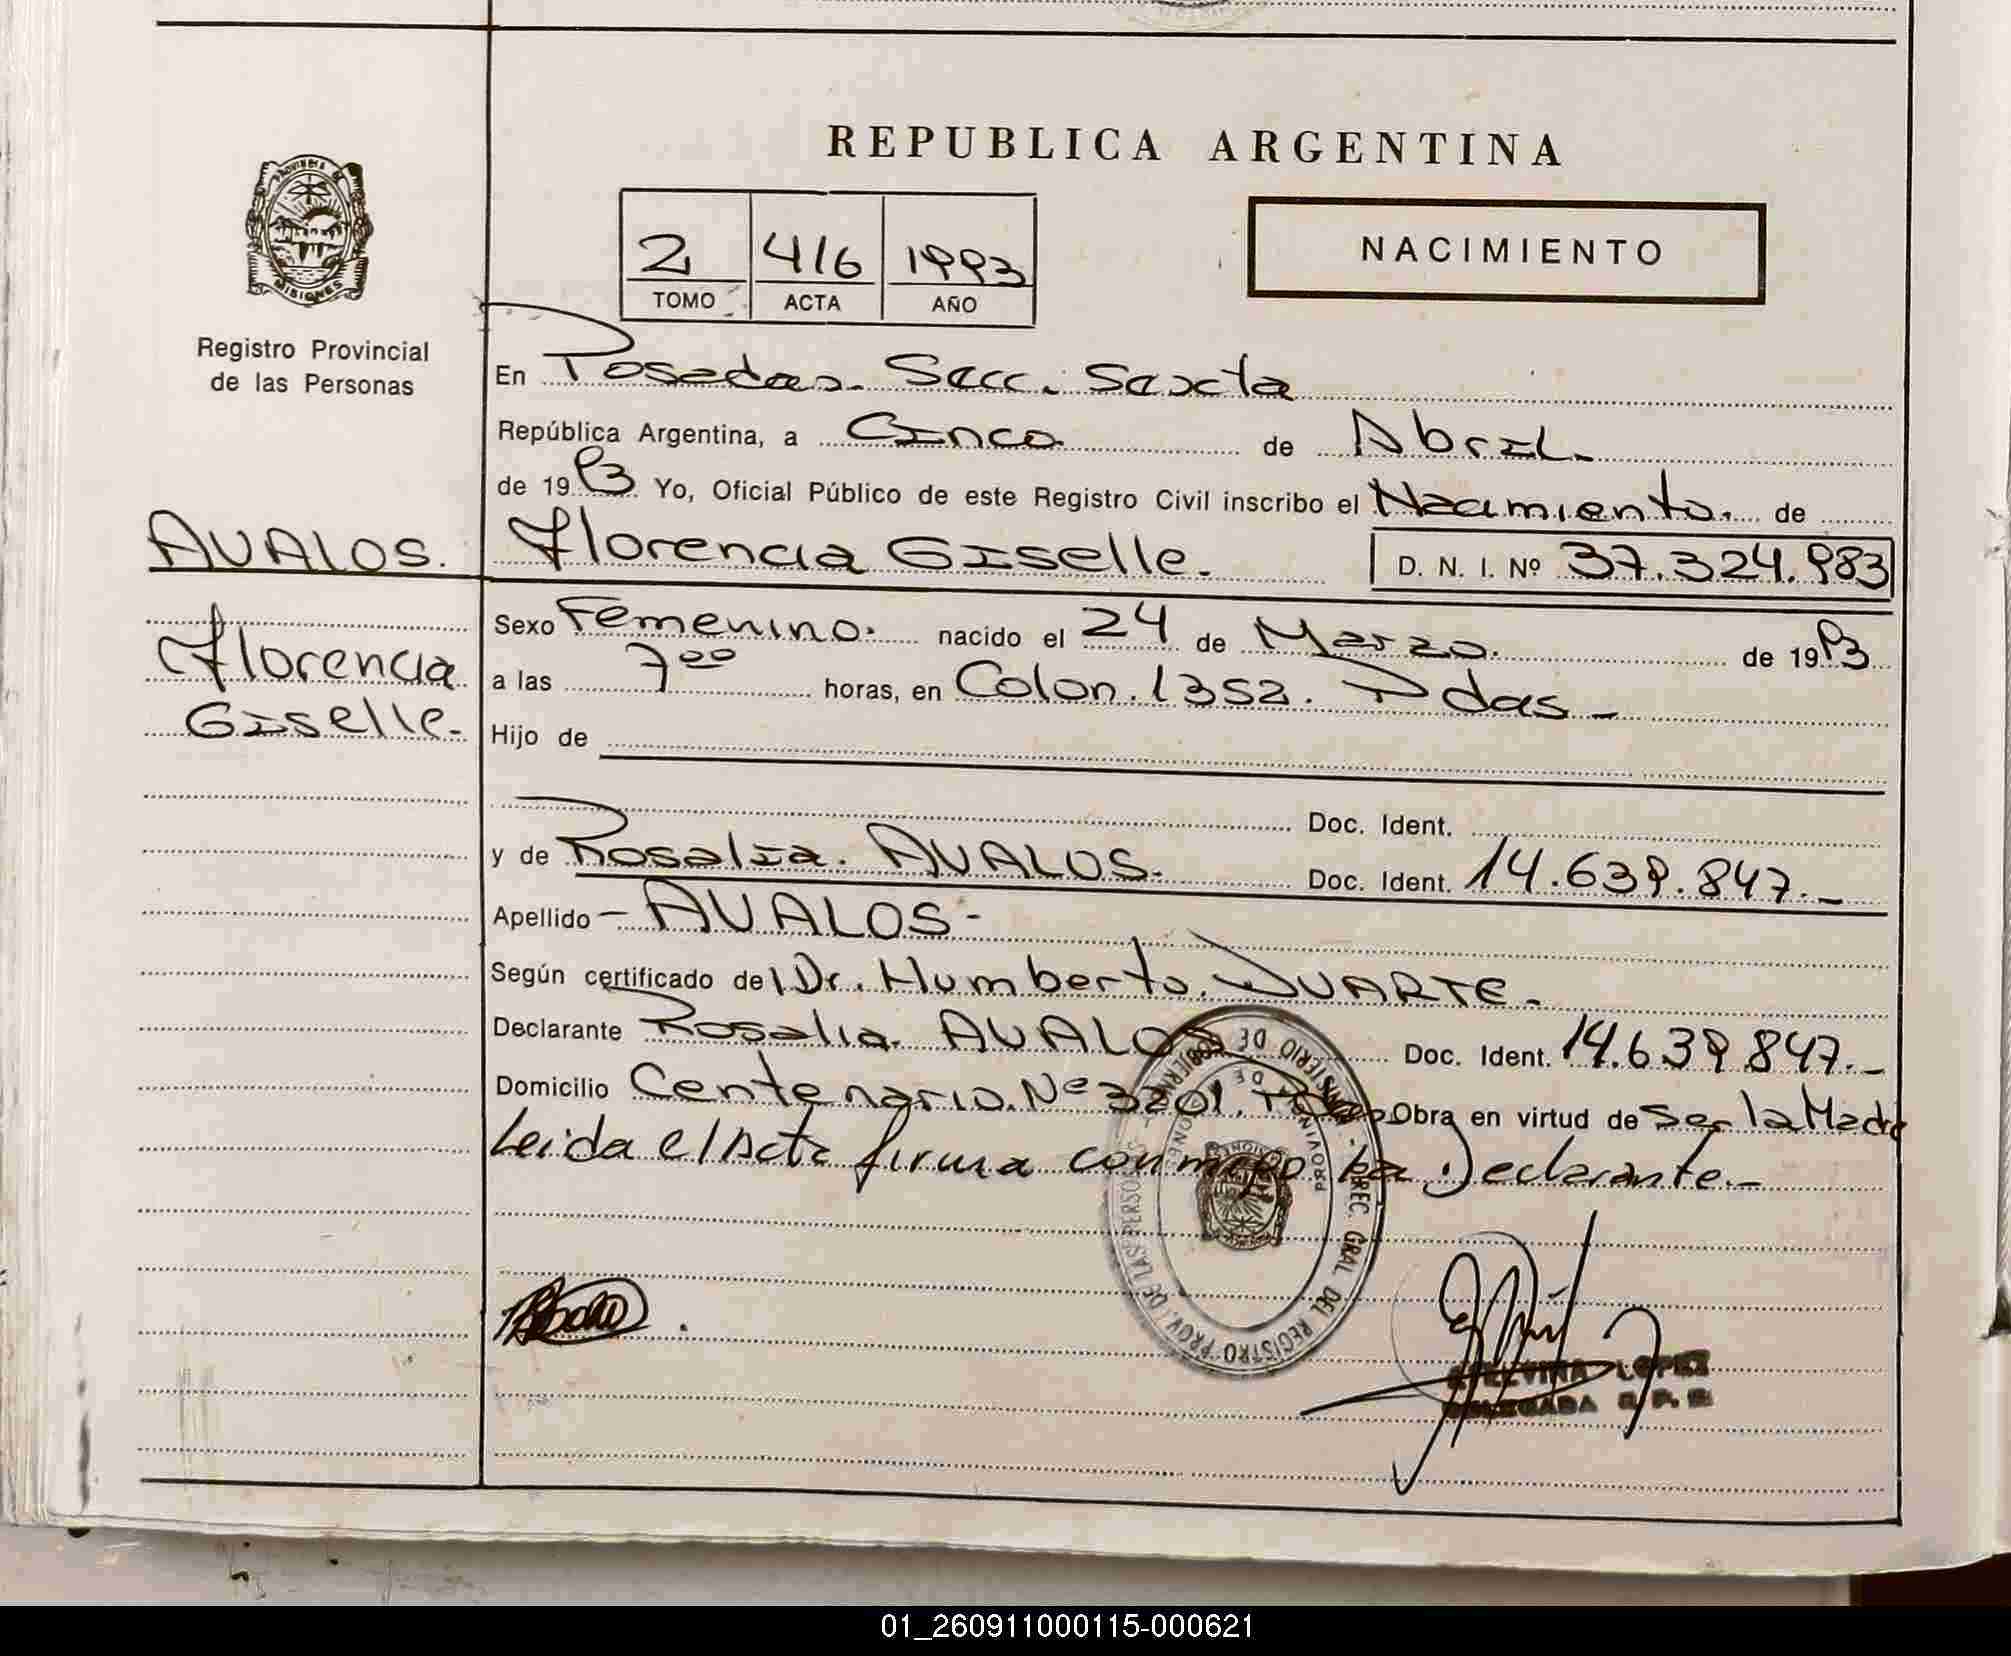 REPUBLICA ARGENTINA
PROVINCIA DE
MISIONES
Registro Provincial
de las Personas
2 416 1993
TOMO ACTA AÑO
NACIMIENTO
En Posadas. Secc. Sexta
República Argentina, a Cinco de Abril.
de 1993 Yo, Oficial Público de este Registro Civil inscribo el Nacimiento. de
AVALOS. Florencia Giselle. D. N. I. Nº 37.324.983
Florencia
Giselle.
Sexo Femenino. nacido el 24 de Marzo. de 1993
a las 7⁰⁰ horas, en Colon. 1352. Pdas-
Hijo de
Doc. Ident.
y de Rosalia. AVALOS. Doc. Ident. 14.639.847.-
Apellido - AVALOS -
Según certificado del Dr. Humberto. DUARTE.
Declarante Rosalia. AVALOS Doc. Ident. 14.639.847.-
Domicilio Centenario. Nº 3201. Obra en virtud de Ser la Madre
Leida el Acta firma conmigo. La Declarante.-
MINISTERIO DE GOBIERNO - DIREC. GRAL DEL REGISTRO PROV. DE LAS PERSONAS
PROVINCIA DE MISIONES
LOPEZ
DELEGADA R. P. P.
01_260911000115-000621